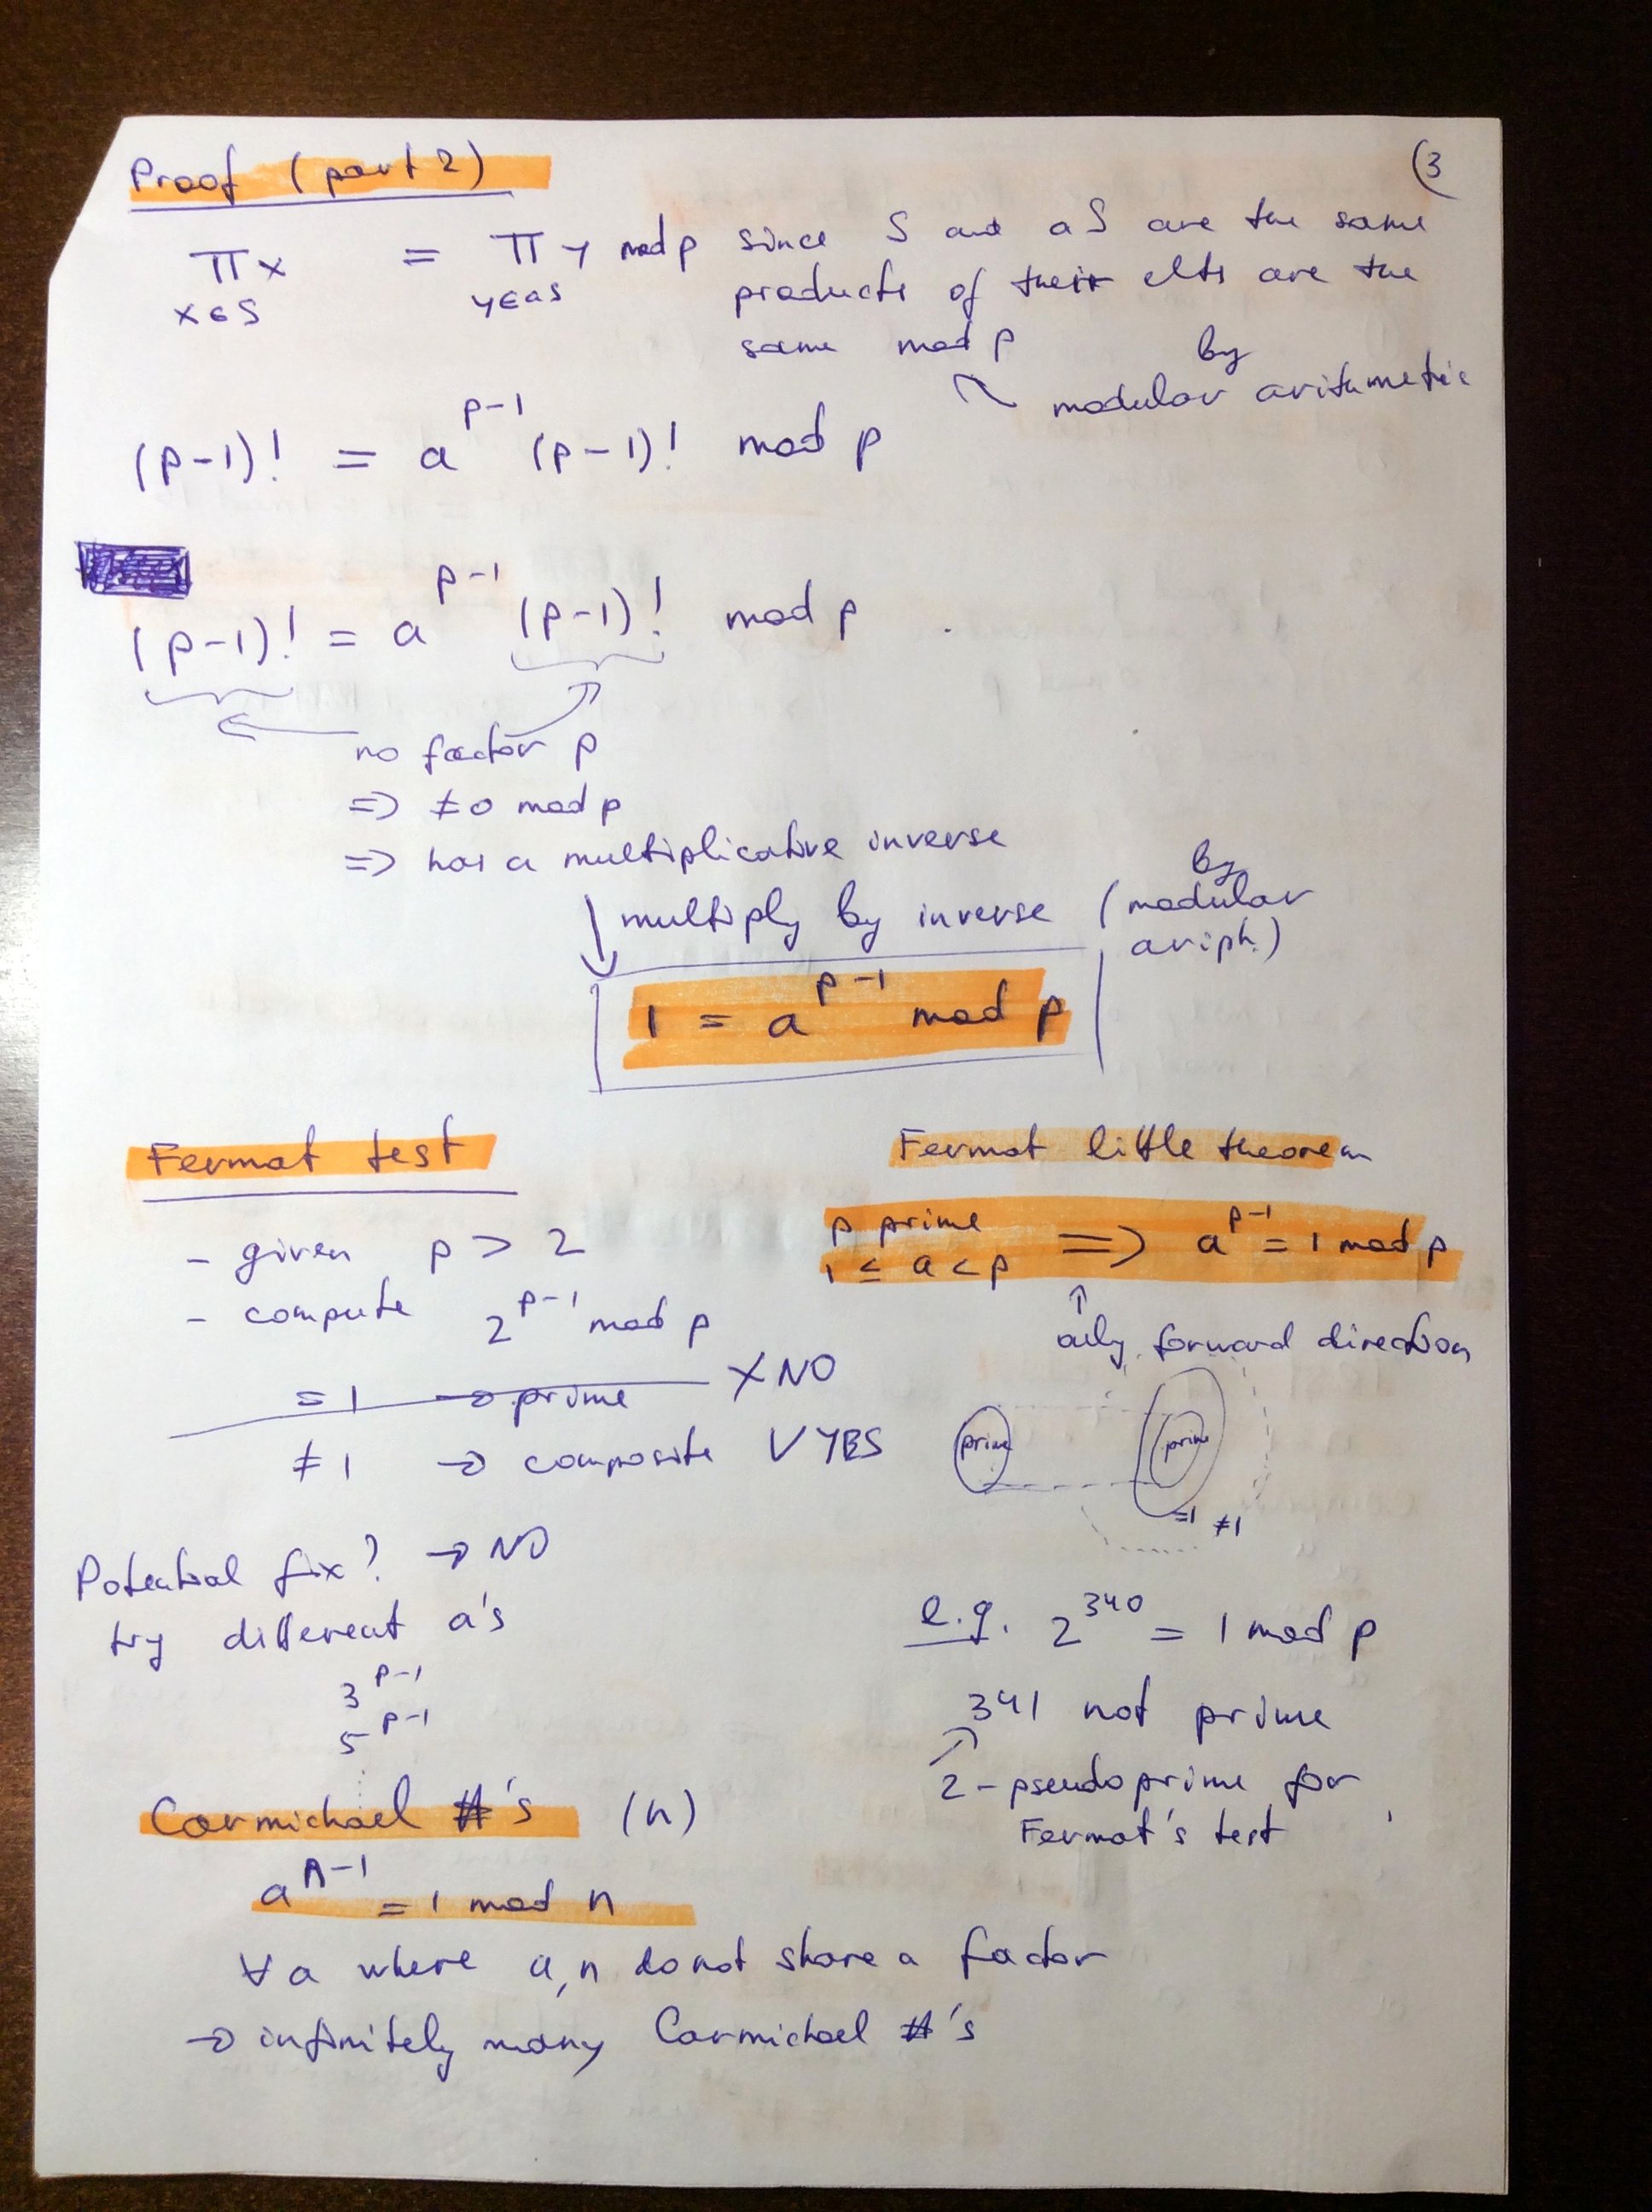 (3
Proof (part 2)
∏ x = ∏ y mod p since S and aS are the same
x∈S y∈aS products of their elts are the
same mod p
by
modular arithmetic
(p-1)! = a^{p-1} (p-1)! mod p
(p-1)! = a^{p-1} (p-1)! mod p
no factor p
=> ≠0 mod p
=> has a multiplicative inverse
↓ multiply by inverse (by modular
ariph.)
1 = a^{p-1} mod p
Fermat test
- given p > 2
- compute 2^{p-1} mod p
=1 → prime X NO
≠1 → composite V YES
Potential fix? → NO
try different a's
3^{p-1}
5^{p-1}
Fermat little theorem
p prime
1 ≤ a < p => a^{p-1} = 1 mod p
↑
only forward direction
prime prime
=1 ≠1
e.g. 2^{340} = 1 mod p
341 not prime
2-pseudoprime for
Fermat's test
Carmichael #'s (n)
a^{n-1} = 1 mod n
∀a where a,n do not share a factor
→ infinitely many Carmichael #'s